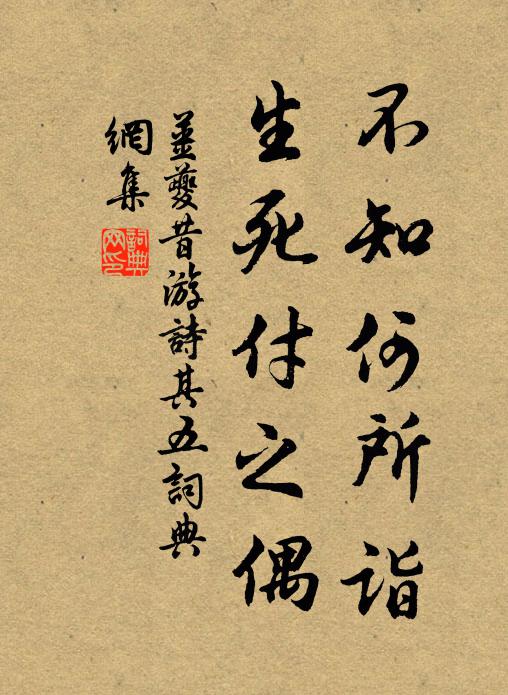 不知何所詣
生死付之偶
姜夔昔游詩其五詞典
網集
詞典網印